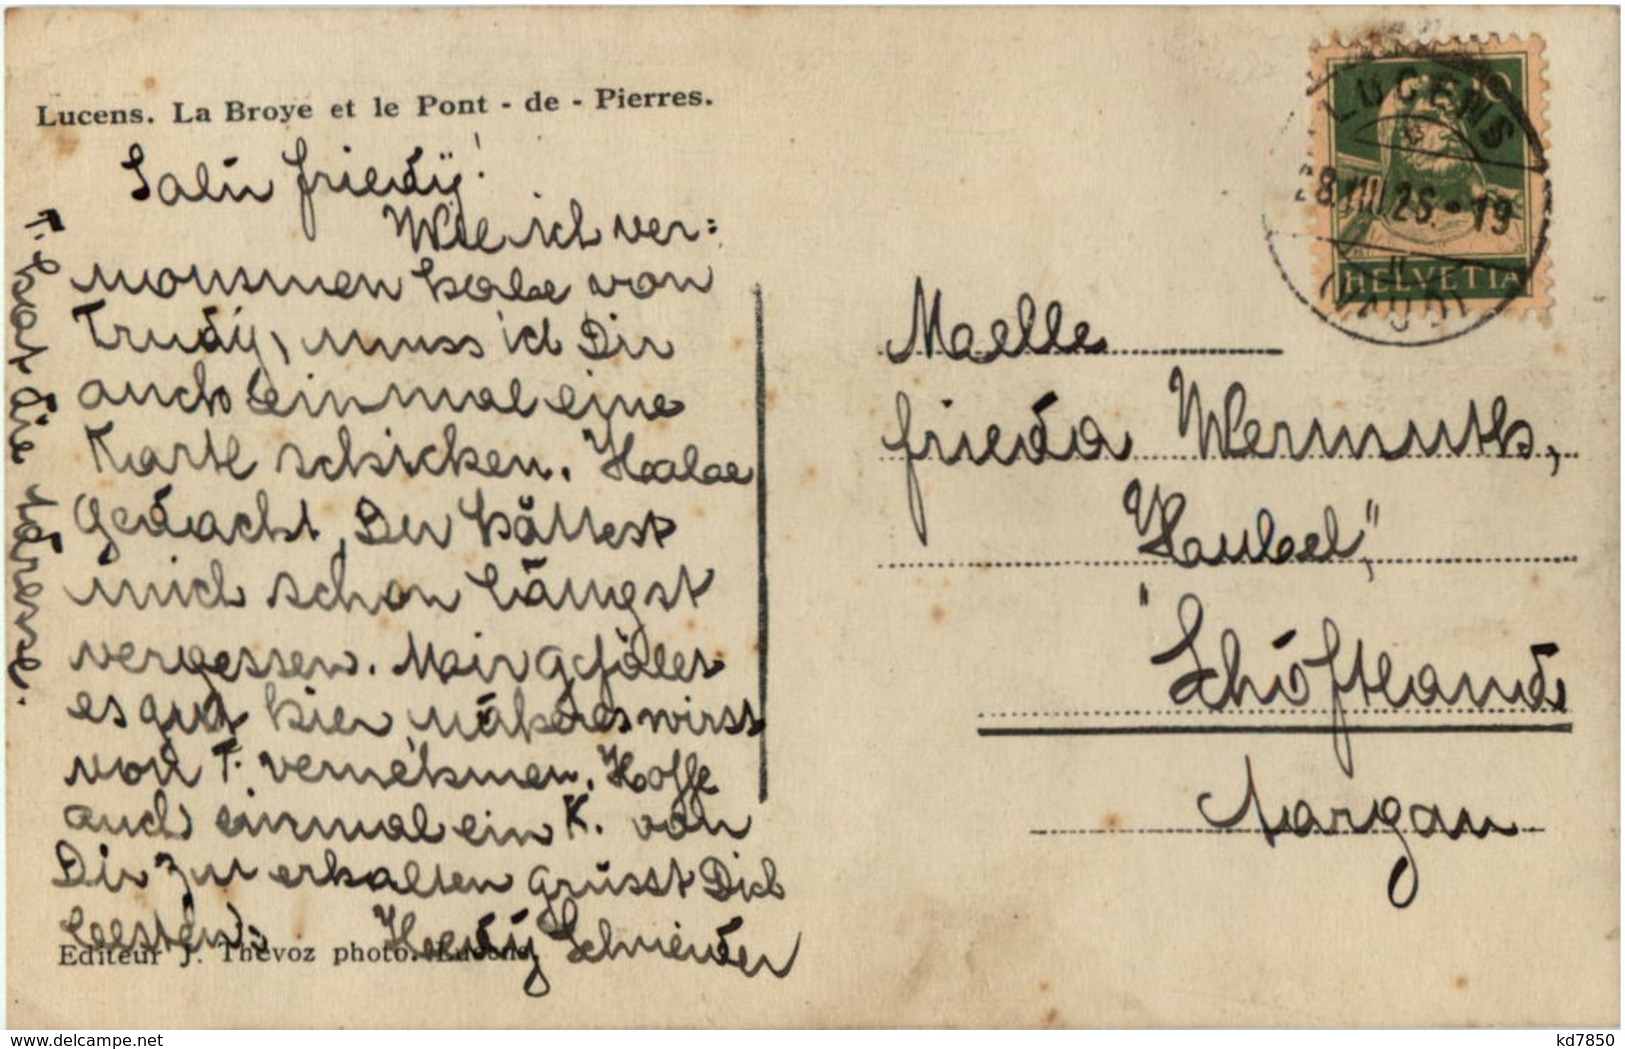 Lucens. La Broye et le Pont - de - Pierres.
Salü Friedÿ!
Wie ich ver=
nommen habe von
Trudÿ, muss ich Dir
auch einmal eine
Karte schicken. Habe
gedacht, Du hättest
mich schon längst
vergessen. Mir gefällt
es gut hier, näheres wirst
von T. vernehmen. Hoffe
auch einmal ein K. von
Dir zu erhalten grüsst Dich
bestens
Hedÿ Schneider
T. hat die Adresse.
Editeur J. Thévoz photo. Lucens
10
HELVETIA
LUCENS
28.VIII 26.-19
(VAUD)
Maelle
Frieda Wermuth,
"Haubel,"
Schöftland
Aargau
www.delcampe.net
kd7850